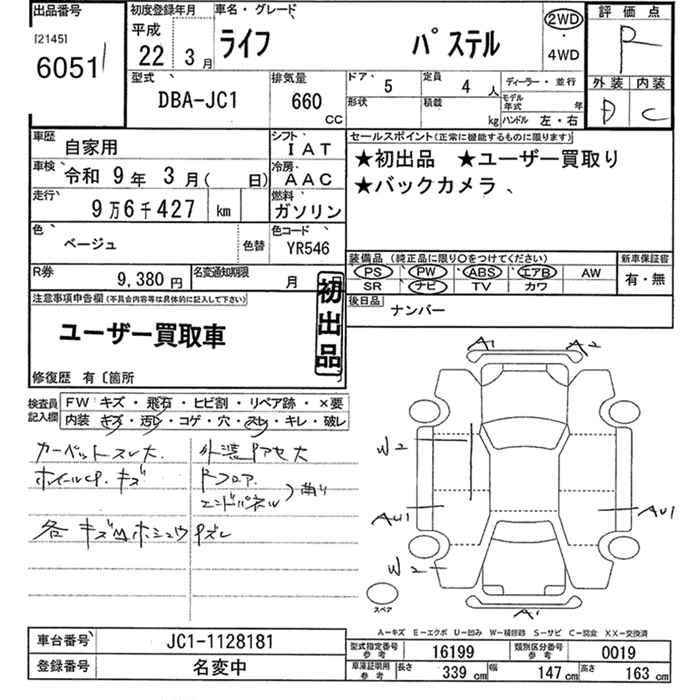 出品番号 初度登録年月 車名・グレード 評価点
[2145] 平成
6051 22 3月 ライフ パステル 2WD・4WD R
型式 排気量 ドア 5 定員 4人 ディーラー・並行 外装 内装
DBA-JC1 660 cc 形状 積載 kg モデル年式 年 ハンドル 左・右 D C
車歴 自家用 シフト IAT セールスポイント(正常に機能するものに限ります)
車検 令和 9年 3月( 日) 冷房 AAC ★初出品 ★ユーザー買取り
走行 9万6千427 km 燃料 ガソリン ★バックカメラ、
色 ベージュ 色替 色コード YR546
装備品(純正品に限り○をつけてください) 新車保証書
PS PW ABS エアB AW 有・無
SR ナビ TV カワ
R券 9,380円 名変通知期限 月
後日品 ナンバー
注意事項申告欄(不具合内容等は具体的に記入して下さい) 初出品
ユーザー買取車
修復歴 有〔箇所
検査員記入欄 FW キズ・飛石・ヒビ割・リペア跡・×要
内装 キズ・汚レ・コゲ・穴・スレ・キレ・破レ
カーペットスレ大. 外装アセ大
ホイールCP. キズ Rフロア
エンドパネル ) 曲り
各 キズ凹ホシュウ ズレ
A1 A2
W2
AU1 AU1
W2
A1
スペア
A-キズ E-エクボ U-凹み W-補修跡 S-サビ C-腐食 XX-交換済
車台番号 JC1-1128181
登録番号 名変中
型式指定番号 参考 16199 類別区分番号 参考 0019
車庫証明用 参考 長さ 339 cm 幅 147 cm 高さ 163 cm